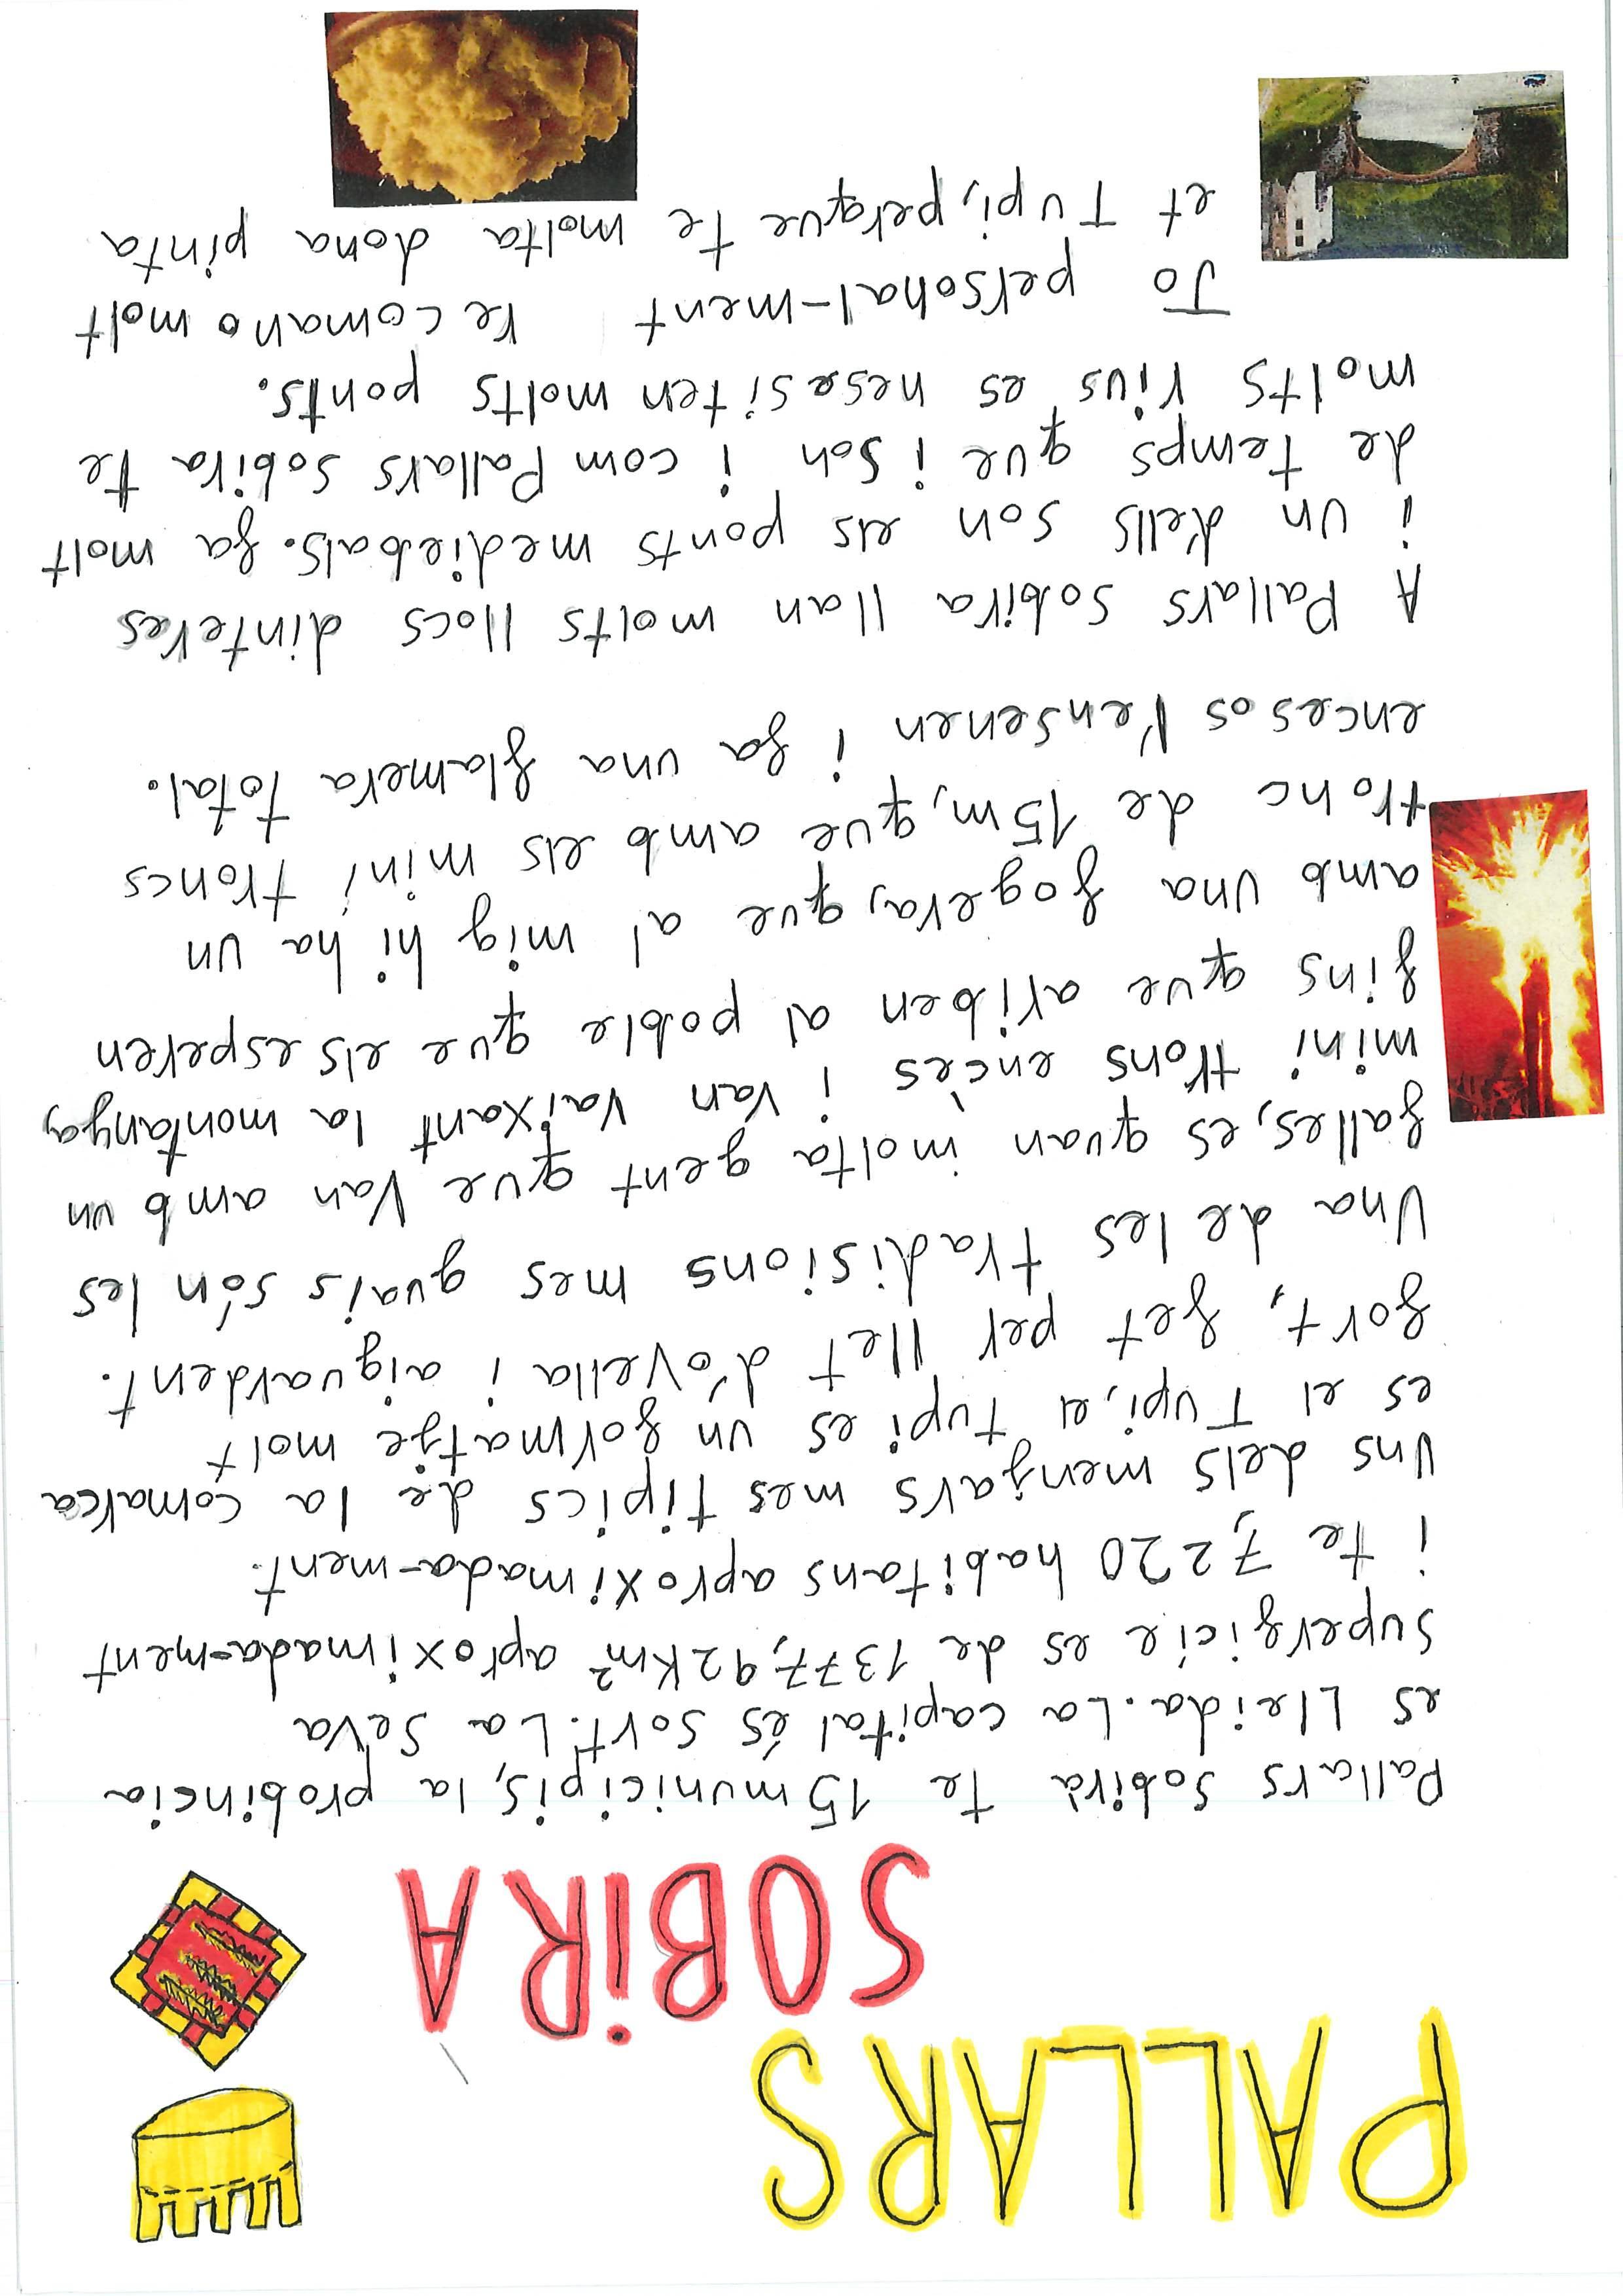 PALLARS
SOBIRÀ
Pallars Sobirà te 15 municipis, la probincia
es Lleida. La capital és Sort. La seva
superficie es de 1377,92 Km² aproximada-ment
i te 7,220 habitans aproximada-ment.
Uns dels menjars mes tipics de la comarca
es el Tupi, el tupi es un formatje molt
fort, fet per llet d'ovella i aiguardent.
Una de les tradisions mes guais són les
falles, es quan molta gent que van amb un
mini trons encès i van vaixant la montanya,
fins que ariben al poble que els esperen
amb una fogera, que al mig hi ha un
tronc de 15m, que amb els mini troncs
encesos l'ensenen i fa una flamera total.
A Pallars sobira llan molts llocs dinteres
i un d'ells son els ponts mediebals. fa molt
de temps que i son i com Pallars sobira te
molts rius es nesesiten molts ponts.
Jo personal-ment recomano molt
et Tupi, perque te molta dona pinta